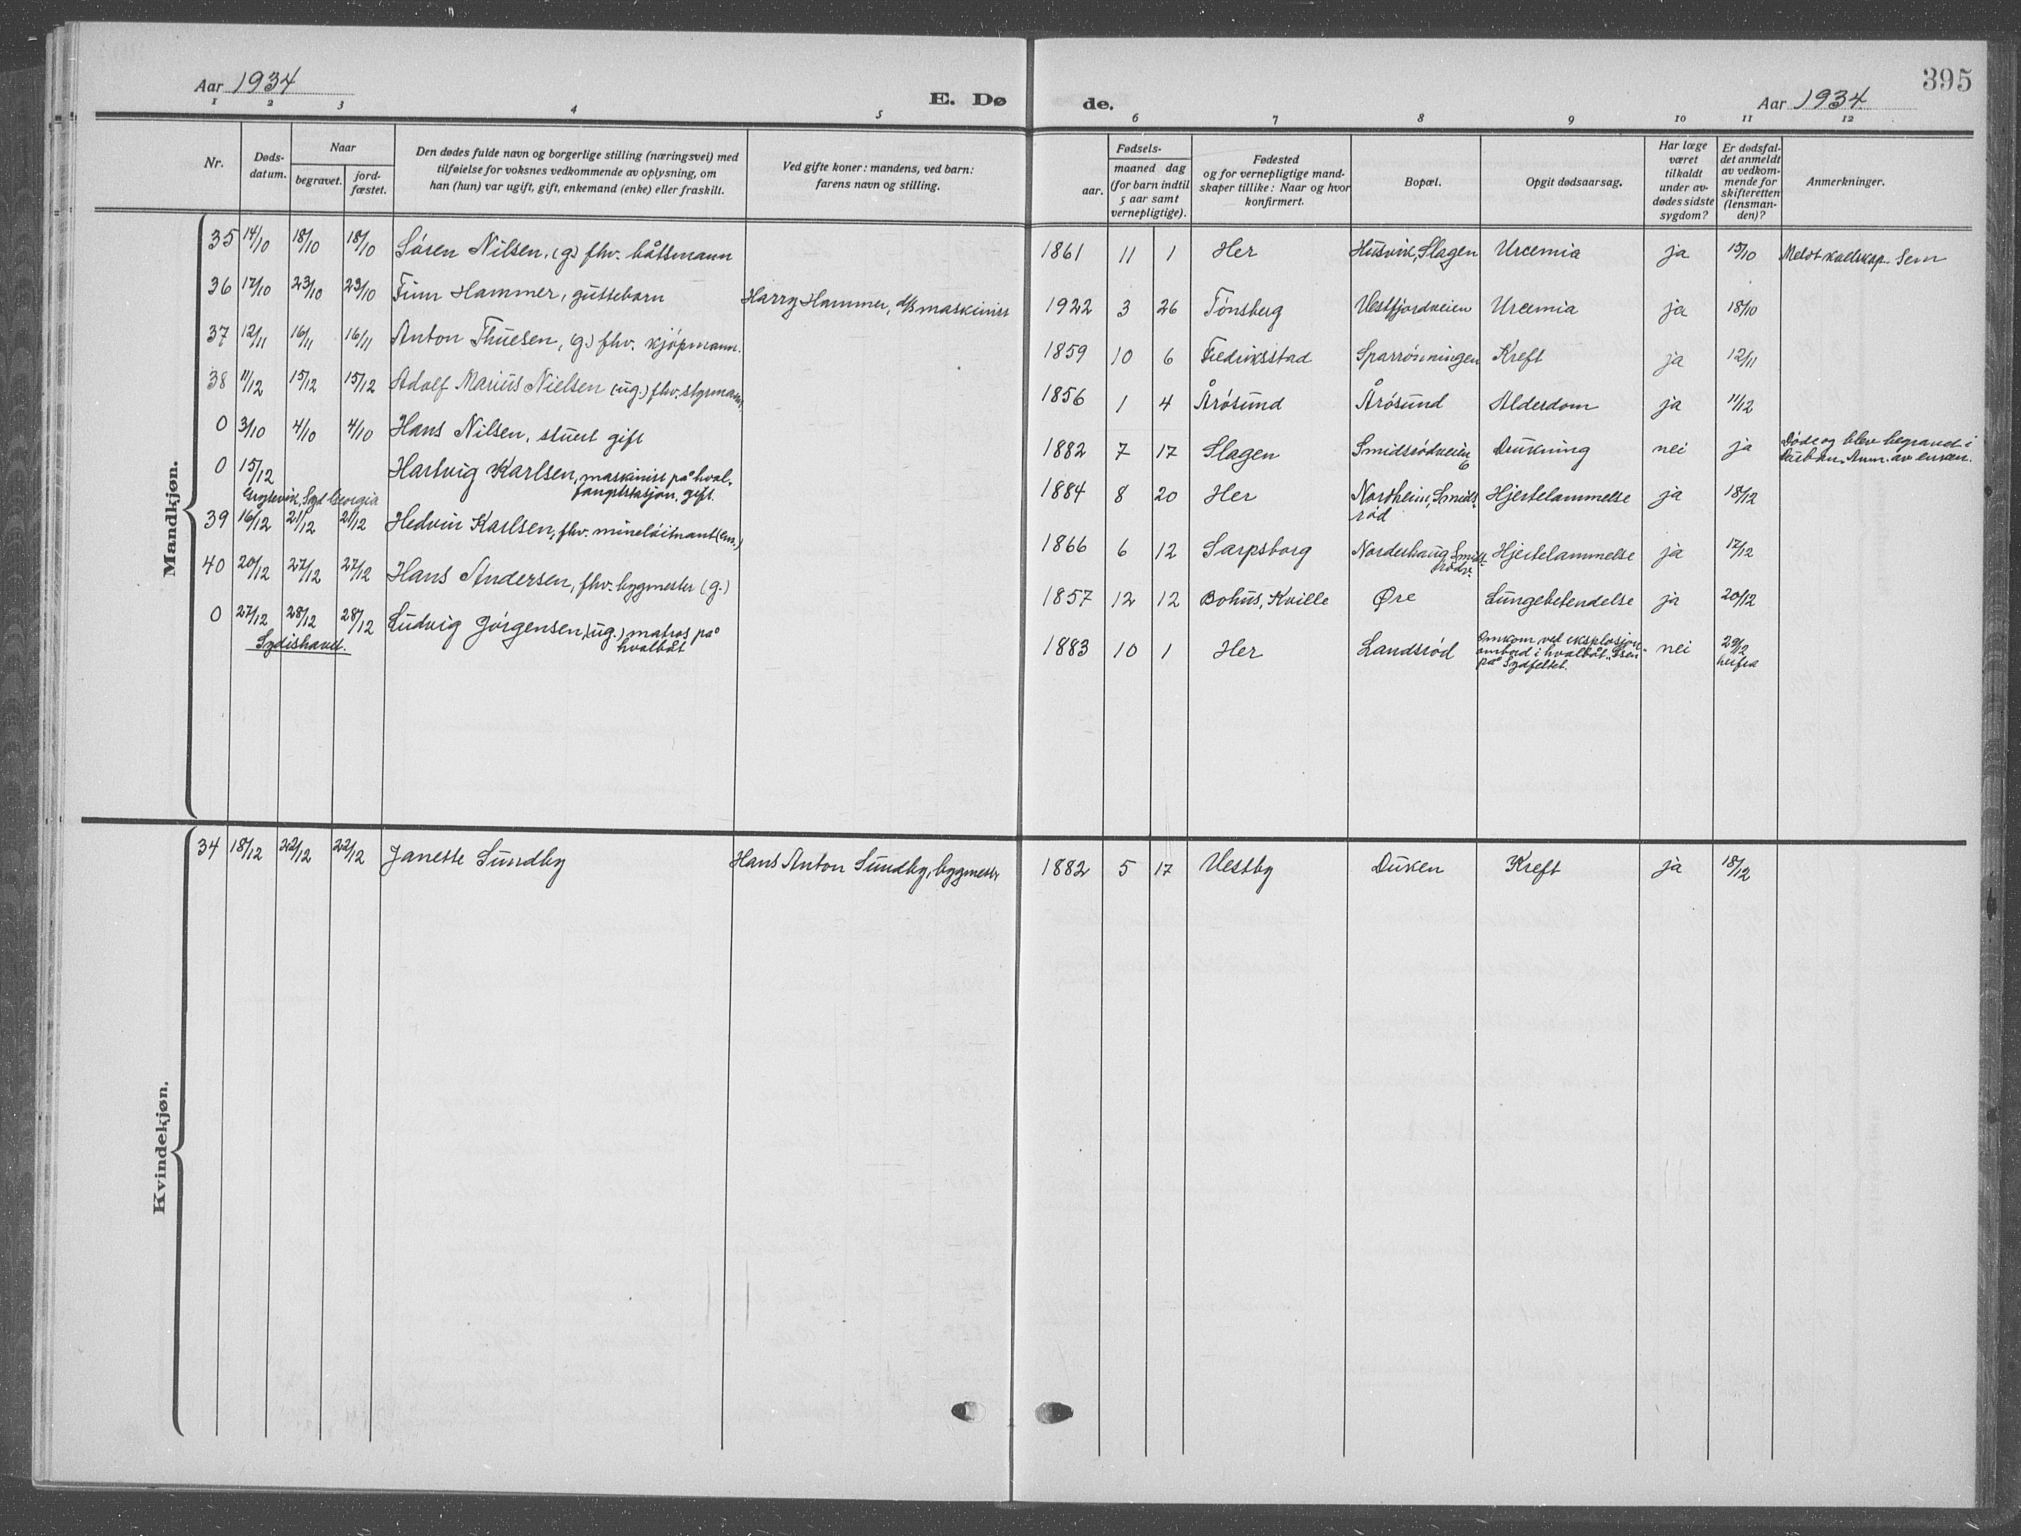 Aar 1934
E. Døde.
Aar 1934
395
1 2 3 4 5 6 7 8 9 10 11 12
Nr.
Døds-
datum.
Naar
begravet.
jord-
fæstet.
Den dødes fulde navn og borgerlige stilling (næringsvei) med
tilføielse for voksnes vedkommende av oplysning, om
han (hun) var ugift, gift, enkemand (enke) eller fraskilt.
Ved gifte koner: mandens, ved barn:
farens navn og stilling.
Fødsels-
aar.
maaned dag
(for barn indtil
5 aar samt
vernepligtige).
Fødested
og for vernepligtige mand-
skaper tillike: Naar og hvor
konfirmert.
Bopæl.
Opgit dødsaarsag.
Har læge
været
tilkaldt
under av-
dødes sidste
sygdom?
Er dødsfal-
det anmeldt
av vedkom-
mende for
skifteretten
(lensman-
den)?
Anmerkninger.
Mandkjøn.
35 14/10 18/10 18/10 Sören Nilsen, (g) fhv. båttsmann 1861 11 1 Her Husvik, Slagen Urcemia ja 15/10 Meldt Sem
36 17/10 23/10 23/10 Finn Hammer, guttebarn Harry Hammer, d/s maskinist 1922 3 26 Tønsberg Vestfjordveien Urcemia ja 18/10
37 12/11 16/11 16/11 Anton Thuesen, (g.) fhv. kjöpmann. 1859 10 6 Fredriksstad Sparrönningen Kreft ja 12/11
38 11/12 15/12 15/12 Adolf Marius Nielsen (ug.) fhv. styrmann, 1856 1 4 Årösund Årösund Alderdom ja 11/12
0 3/10 4/10 4/10 Hans Nilsen, stuert gift 1882 7 17 Slagen Smidsrödveien 6 Drukning nei ja Döde og blev begravd i
Durban. Anm. av enken.
0 15/12 Hartvig Karlsen, maskinist på hval-
fangststasjon, gift. 1884 8 20 Her Nordheim, Smids-
röd Hjertelammelse ja 18/12
Grytevik, Syd Georgia
39 16/12 21/12 21/12 Hedvin Karlsen, fhv. minelöitnant (em.) 1866 6 12 Sarpsborg Norderhaug Smids-
rödv. Hjertelammelse ja 17/12
40 20/12 27/12 27/12 Hans Andersen, fhv. bygmester (g.) 1857 12 12 Bohus, Kville Øre Lungebetendelse ja 20/12
0 27/12 28/12 28/12 Ludvig Jörgensen, (ug.) matros på
hvalbåt 1883 10 1 Her Landsröd Omkom ved eksplosjon
ombord i hvalbåt
på Sydfeltet. nei 29/12
herfra
Sydishavet.
Kvindekjøn.
34 18/12 22/12 22/12 Janette Sundby Hans Anton Sundby, bygmester 1882 5 17 Vestby Duken Kreft ja 18/12